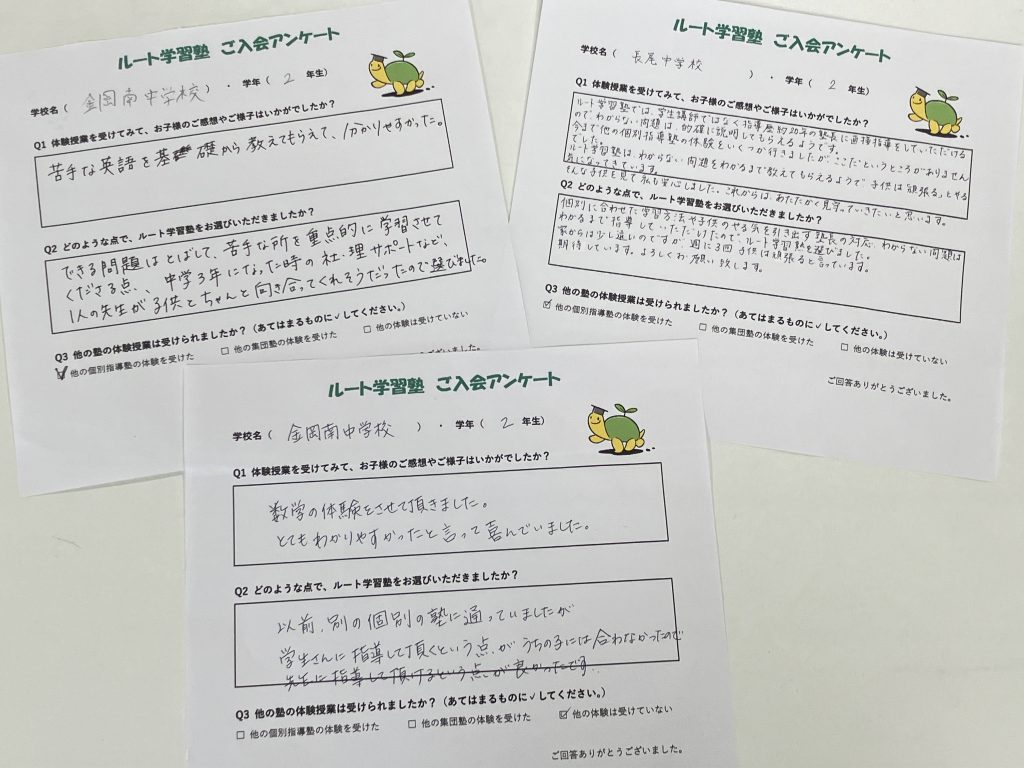 ルート学習塾 ご入会アンケート
学校名( 金岡南中学校 )・ 学年( 2 年生)
Q1 体験授業を受けてみて、お子様のご感想やご様子はいかがでしたか?
苦手な英語を基礎から教えてもらえて、分かりやすかった。
Q2 どのような点で、ルート学習塾をお選びいただきましたか?
できる問題はとばして、苦手な所を重点的に学習させて
くださる点、、中学3年になった時の社・理サポートなど、
1人の先生が子供とちゃんと向き合ってくれそうだったので選びました。
Q3 他の塾の体験授業は受けられましたか?(あてはまるものに✓してください。)
☑ 他の個別指導塾の体験を受けた □ 他の集団塾の体験を受けた □ 他の体験は受けていない
ルート学習塾 ご入会アンケート
学校名( 長尾中学校 )・ 学年( 2 年生)
Q1 体験授業を受けてみて、お子様のご感想やご様子はいかがでしたか?
ルート学習塾では、学生講師ではなく指導歴約20年の塾長に直接指導をしていただける
のでわからない問題は、的確に説明してもらえるようです。
今まで他の個別指導塾の体験をいくつか行きましたが、ここだというところがありません
でした。
ルート学習塾は、わからない問題をわかるまで教えてもらえるようで子供は「頑張る」とやる
気になってきています。
そんな子供を見て私も安心しました。これからは、あたたかく見守っていきたいと思います。
Q2 どのような点で、ルート学習塾をお選びいただきましたか?
個別に合わせた学習方法や子供のやる気を引き出す塾長の対応、わからない問題は
わかるまで指導していただけたので、ルート学習塾を選びました。
家からは少し遠いのですが、週に3回子供は頑張ると言っています。
期待しています。よろしくお願い致します。
Q3 他の塾の体験授業は受けられましたか?(あてはまるものに✓してください。)
☑ 他の個別指導塾の体験を受けた □ 他の集団塾の体験を受けた □ 他の体験は受けていない
ご回答ありがとうございました。
ルート学習塾 ご入会アンケート
学校名( 金岡南中学校 )・ 学年( 2 年生)
Q1 体験授業を受けてみて、お子様のご感想やご様子はいかがでしたか?
数学の体験をさせて頂きました。
とてもわかりやすかったと言って喜んでいました。
Q2 どのような点で、ルート学習塾をお選びいただきましたか?
以前、別の個別の塾に通っていましたが
学生さんに指導して頂くという点、が うちの子には合わなかったので
先生に指導して頂けるという点、が良かったです.
Q3 他の塾の体験授業は受けられましたか?(あてはまるものに✓してください。)
□ 他の個別指導塾の体験を受けた □ 他の集団塾の体験を受けた ☑ 他の体験は受けていない
ご回答ありがとうございました。